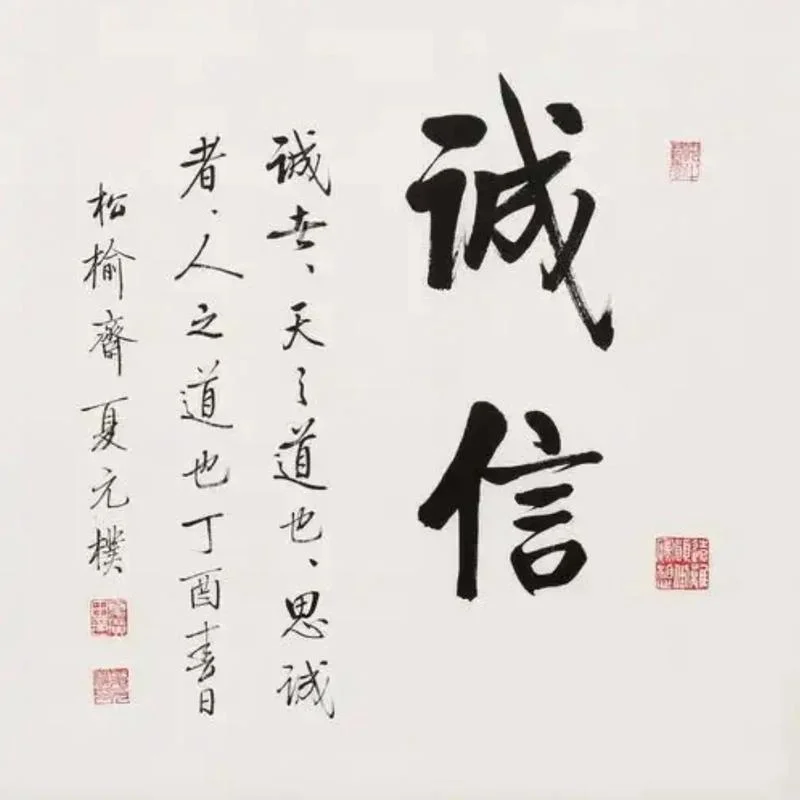 诚信
诚者、天之道也、思诚
者、人之道也丁酉春日
松榆斋夏元樸